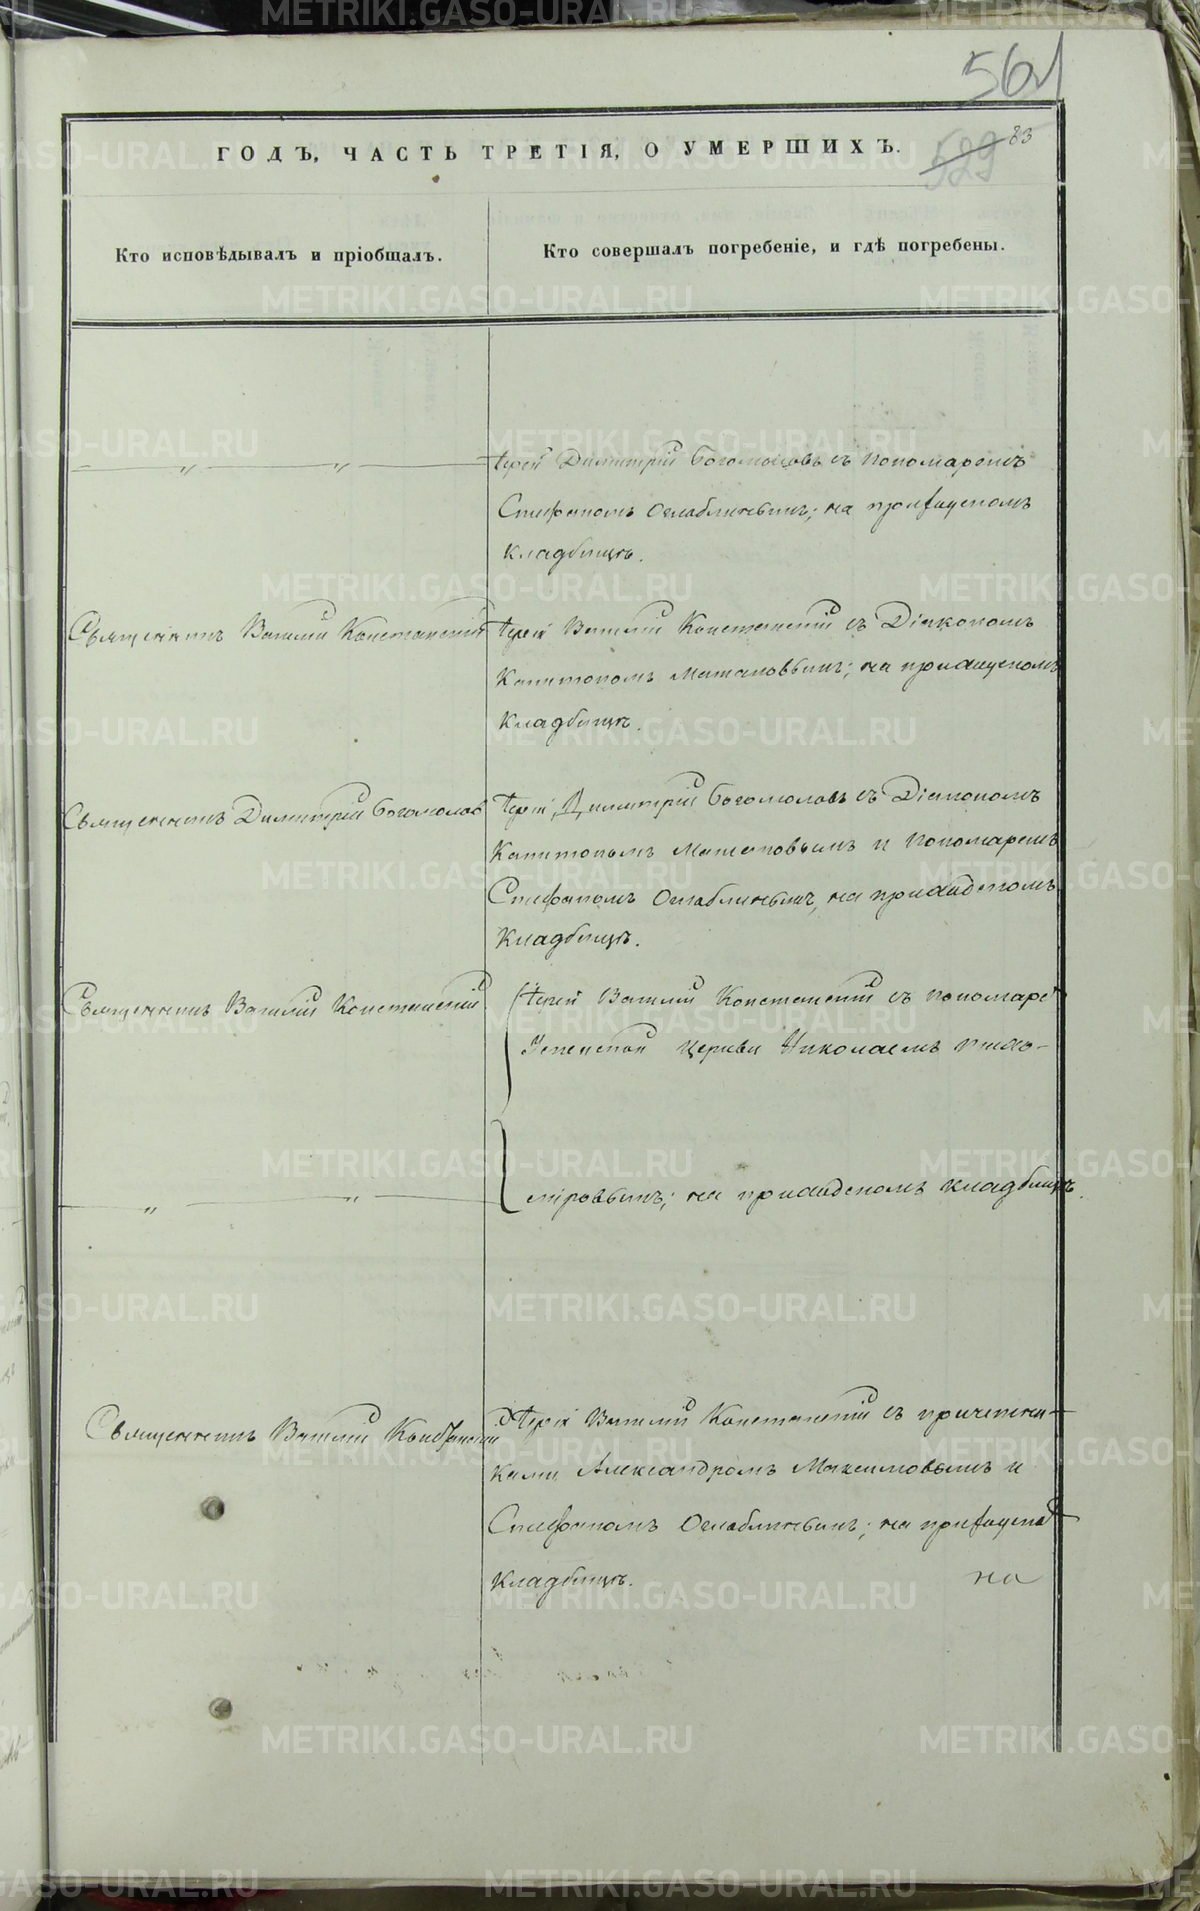 561
ГОДЪ, ЧАСТЬ ТРЕТІЯ, О УМЕРШИХЪ.
529
83
Кто исповѣдывалъ и пріобщалъ.
Кто совершалъ погребеніе, и гдѣ погребены.
Іерей Димитрій Богомоловъ съ Пономаремъ
Стефаномъ Оглоблинымъ; на приходскомъ
кладбищѣ.
Священникъ Василій Констанскій
Іерей Василій Констанскій съ Діакономъ
Капитономъ; на приходскомъ
кладбищѣ.
Священникъ Димитрій Богомоловъ
Іерей Димитрій Богомоловъ съ Діакономъ
Капитономъ и Пономаремъ
Стефаномъ Оглоблинымъ, на приходскомъ
кладбищѣ.
Священникъ Василій Констанскій
Іерей Василій Констанскій съ пономаре
Успенской церкви Николаемъ
на приходскомъ кладбищѣ.
Священникъ Василій Констанскій
Іерей Василій Констанскій съ причетни-
ками Александромъ Максимовымъ и
Стефаномъ Оглоблинымъ; на приходском
кладбищѣ.
на
METRIKI.GASO-URAL.RU